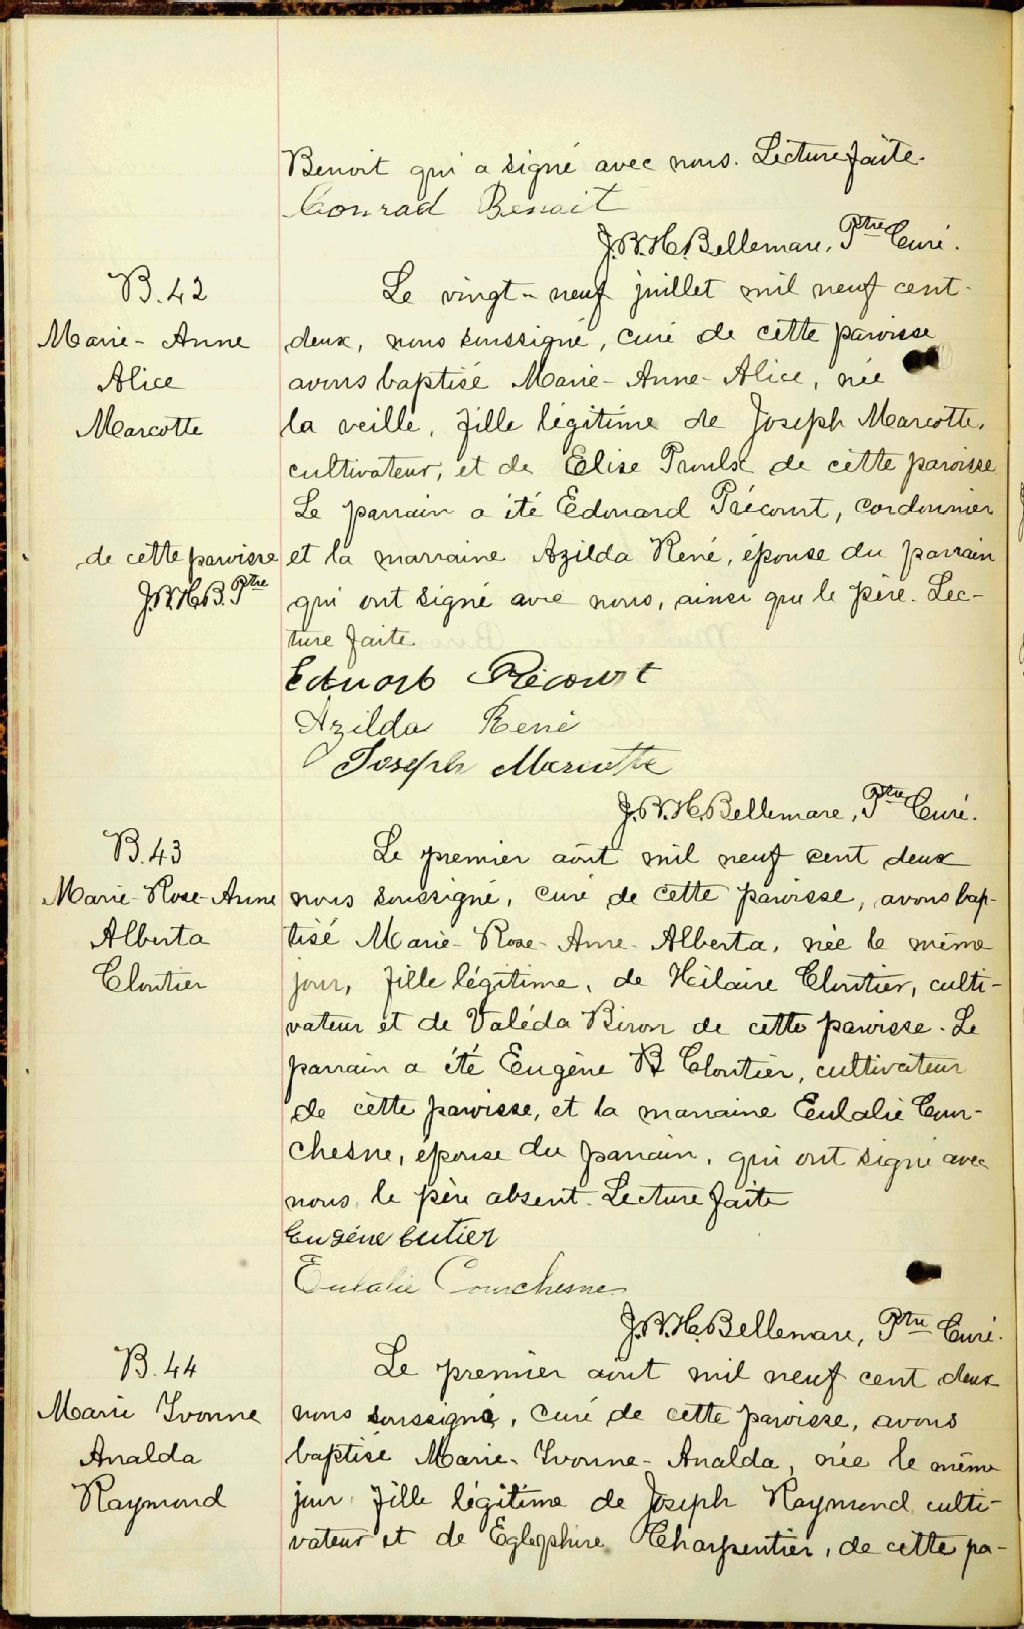 Benoit qui a signé avec nous. Lecture faite.
Conrad Benoit
J.B.H. Bellemare, Ptre Curé.
B. 42
Marie-Anne
Alice
Marcotte
Le vingt-neuf juillet mil neuf cent-
deux, nous soussigné, curé de cette paroisse
avons baptisé Marie-Anne-Alice, née
la veille, fille légitime de Joseph Marcotte,
cultivateur, et de Elise Proulx de cette paroisse
Le parrain a été Edouard Précourt, cordonnier
de cette paroisse
J.B.H.B. Ptre
et la marraine Azilda René, épouse du parrain
qui ont signé avec nous, ainsi que le père. Lec-
ture faite
Edouard Précourt
Azilda René
Joseph Marcotte
J.B.H. Bellemare, Ptre Curé.
B. 43
Marie-Rose-Anne
Alberta
Cloutier
Le premier août mil neuf cent deux
nous soussigné, curé de cette paroisse, avons bap-
tisé Marie-Rose-Anne-Alberta, née le même
jour, fille légitime, de Hilaire Cloutier, culti-
vateur et de Valéda Biron de cette paroisse. Le
parrain a été Eugène B Cloutier, cultivateur
de cette paroisse, et la marraine Eulalie Cour-
chesne, épouse du parrain, qui ont signé avec
nous, le père absent. Lecture faite
Eugène
Eulalie Courchesne
J.B.H. Bellemare, Ptre Curé.
B. 44
Marie Yvonne
Analda
Raymond
Le premier août mil neuf cent deux
nous soussigné, curé de cette paroisse, avons
baptisé Marie-Yvonne-Analda, née le même
jour, fille légitime de Joseph Raymond culti-
vateur et de Eglephire Charpentier, de cette pa-